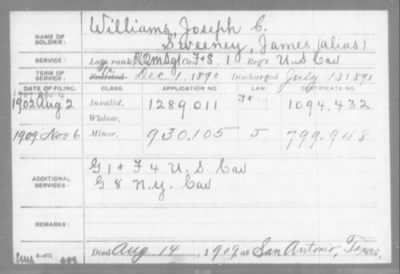 Williams, Joseph C.
NAME OF SOLDIER:
Sweeney, James (alias)
SERVICE: Late rank, R2MSgt Co. F+S, 1 Reg't U S Cav
TERM OF SERVICE: Enlisted Dec 1, 1890 Discharged July 13 1891
DATE OF FILING. CLASS. APPLICATION NO. LAW. CERTIFICATE NO.
1902 Aug 2 Invalid, 1289011 1094.432
Widow,
1909 Nov 6 Minor, 930.105 J 799.948
ADDITIONAL SERVICES:
G 1 + F 4 U.S. Cav
G 8 N.Y. Cav
REMARKS:
Died Aug 14, 1909 at San Antonio, Texas,